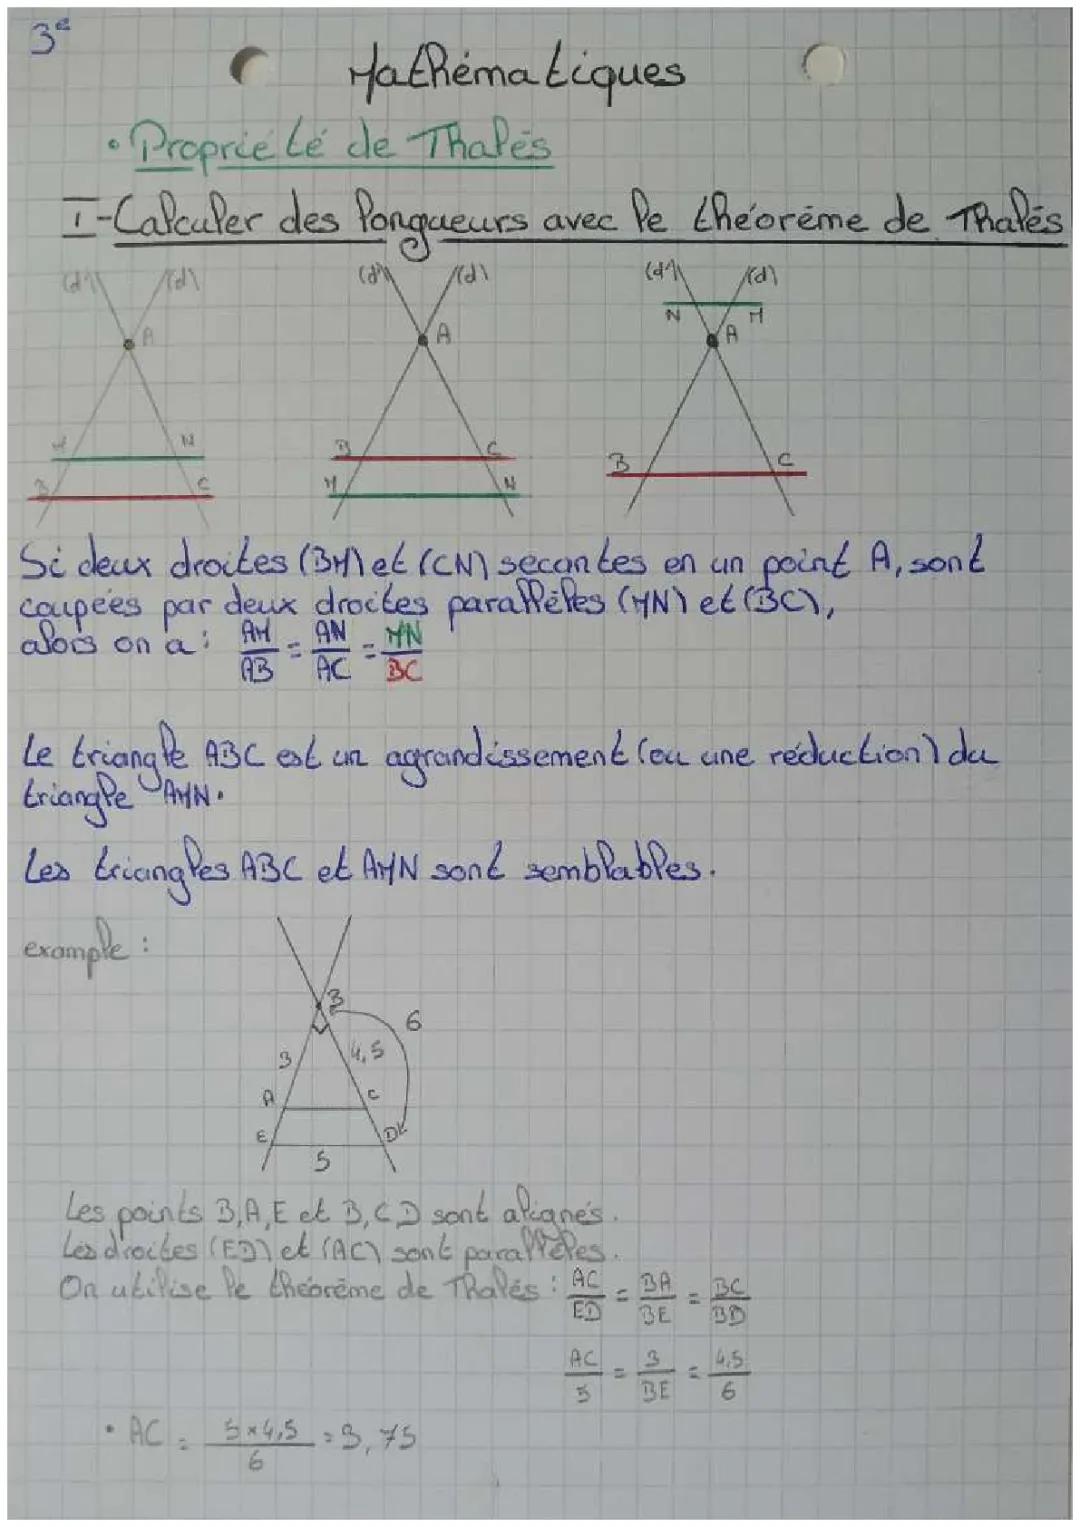 3e
Mathématiques
• Propriété de Thalès
I-Calculer des longueurs avec le théorème de Thalès
(d') (d) (d') (d) (d') (d)
N M
A A A
M N B C B C
B C M N
Si deux droites (BM) et (CN) sécantes en un point A, sont
coupées par deux droites parallèles (MN) et (BC),
alors on a : AM/AB = AN/AC = MN/BC
Le triangle ABC est un agrandissement (ou une réduction) du
triangle AMN.
Les triangles ABC et AMN sont semblables.
example :
B
6
3 4,5
A C
E D
5
Les points B, A, E et B, C D sont alignés.
Les droites (ED) et (AC) sont parallèles.
On utilise le théorème de Thalès : AC/ED = BA/BE = BC/BD
AC/5 = 3/BE = 4,5/6
• AC = 5×4,5/6 = 3,75